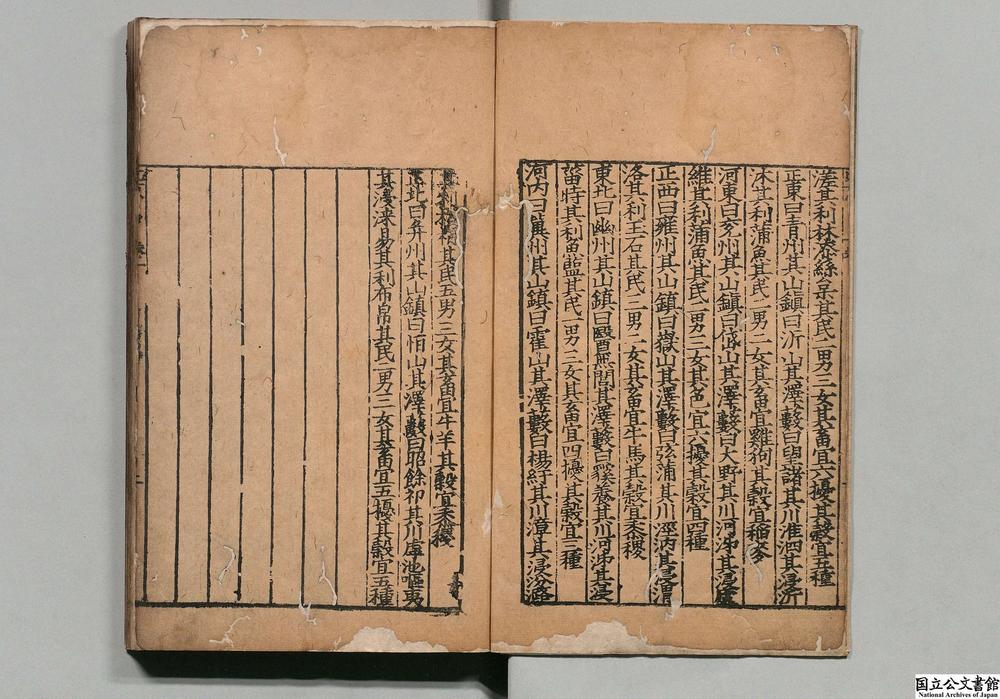 溠其利林漆絲枲其民二男三女其畜宜六擾其穀宜五種
正東曰青州其山鎮曰沂山其澤藪曰望諸其川淮泗其浸沂
沐其利蒲魚其民二男二女其畜宜雞狗其穀宜稲麥
河東曰兖州其山鎮曰岱山其澤藪曰大野其川河泲其浸廬
維其利蒲魚其民二男三女其畜宜六擾其穀宜四種
正西曰雍州其山鎮曰嶽山其澤藪曰弦蒲其川涇汭其浸渭
洛其利玉石其民三男二女其畜宜牛馬其穀宜黍稷
東北曰幽州其山鎮曰醫無閭其澤藪曰貕養其川河泲其浸
菑時其利魚鹽其民一男三女其畜宜四擾其穀宜三種
河内曰冀州其山鎮曰霍山其澤藪曰楊紆其川漳其浸汾潞
其利松栢其民五男三女其畜宜牛羊其穀宜黍稷
正北曰并州其山鎮曰恒山其澤藪曰昭餘祁其川虖池嘔夷
其浸淶易其利布帛其民二男三女其畜宜五擾其穀宜五種
国立公文書館
National Archives of Japan